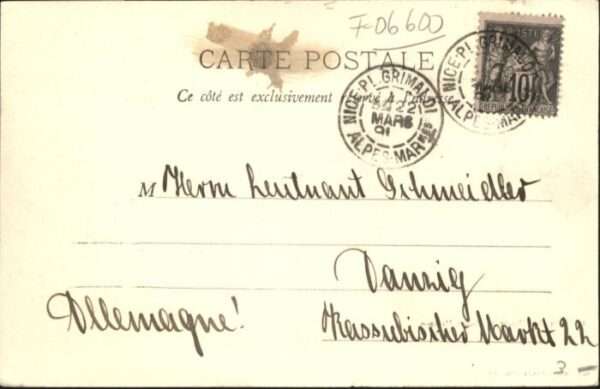 F-06600
CARTE POSTALE
Ce côté est exclusivement
NICE-PL. GRIMALDI
22
MARS
01
ALPES-MARMES
NICE-PL. GRIMALDI
ALPES-MAR
10
M Herrn Leutnant Schmeidler
Danzig
Allemagne!
Kassubischer Markt 22
3-